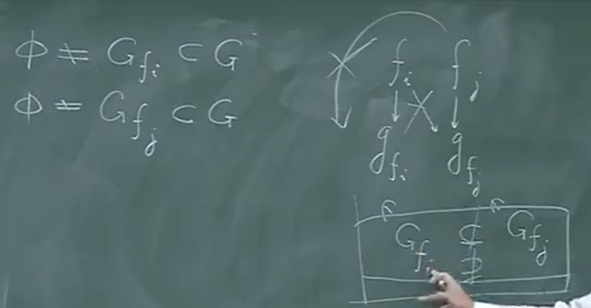 ϕ ≠ G_{f_i} ⊂ G
ϕ ≠ G_{f_j} ⊂ G
f_i f_j
g_{f_i} g_{f_j}
G_{f_i} ⊄ G_{f_j}
⊅